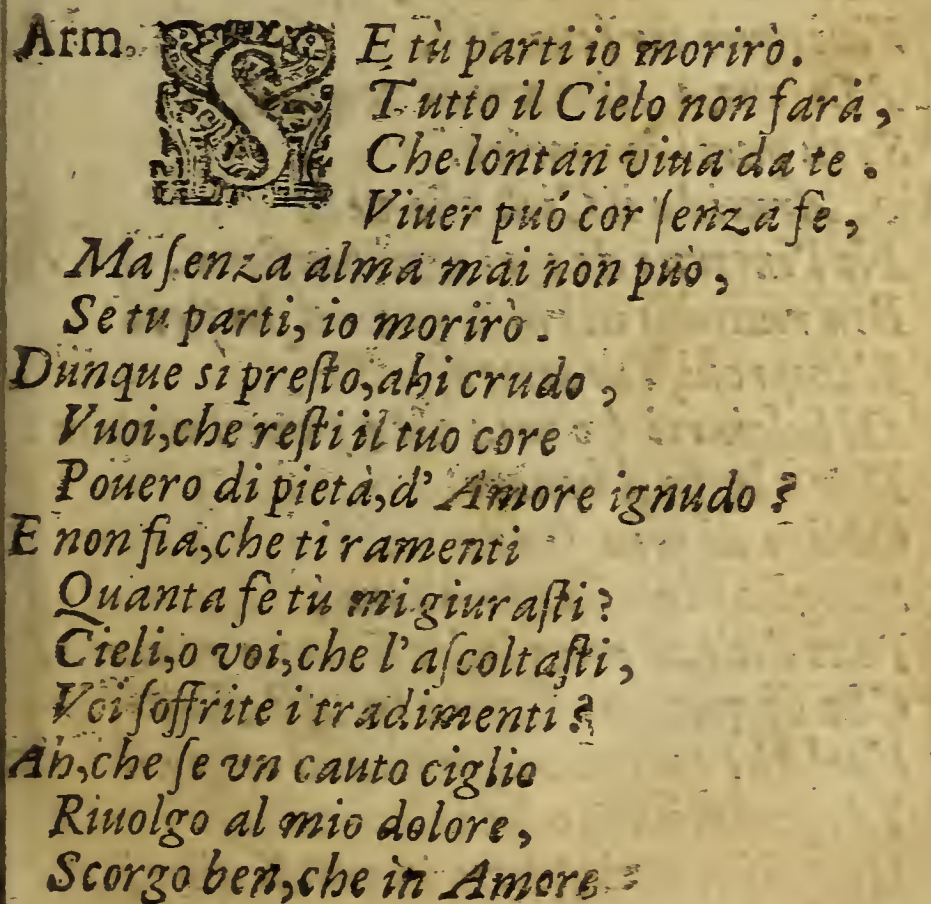 Arm. SE tù parti io morirò.
Tutto il Cielo non farà,
Che lontan viua da te.
Viuer puó cor ſenza fe,
Ma ſenza alma mai non può,
Se tu parti, io morirò.
Dunque sì preſto, ahi crudo,
Vuoi, che reſti il tuo core
Pouero di pietà, d' Amore ignudo?
E non fia, che ti ramenti
Quanta fè tù mi giuraſti?
Cieli, o voi, che l'aſcoltaſti,
Voi ſoffrite i tradimenti?
Ah, che ſe vn cauto ciglio
Riuolgo al mio dolore,
Scorgo ben, che in Amore